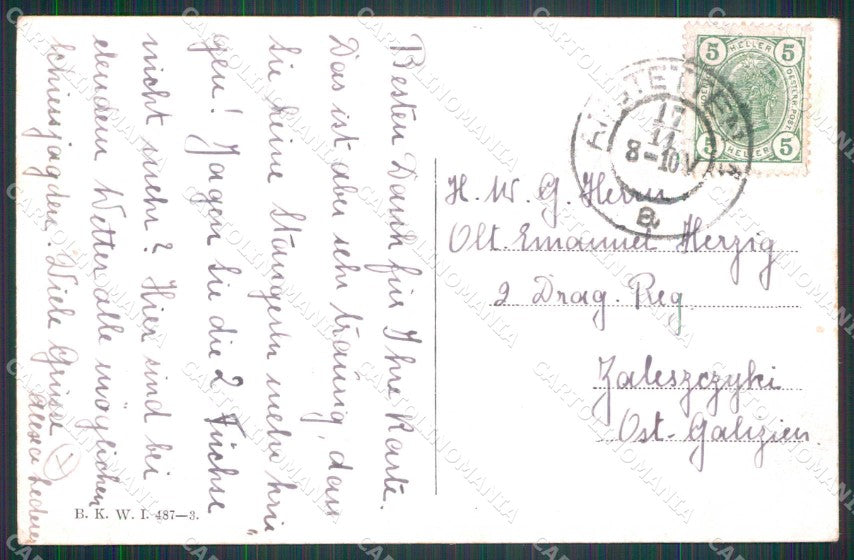 Besten Dank für Ihre Karte.
Das ist aber sehr traurig, dass
Sie keine Stangerln mehr krie„
gen! Jagen Sie die 2 Füchse
nicht mehr? Hier sind bei
elendem Wetter alle möglichen
Schiessjagden. Viele Grüsse
Lederer
B. K. W. I. 487—3.
5 HELLER 5
OESTERR. POST
5 HELLER 5
AMSTETTEN
17
11
8-10V
a
H. W. G. Herrn
Olt. Emanuel Herzig
2 Drag. Reg
Zaleszczyki
Ost-Galizien.
CARTOLINOMANIA